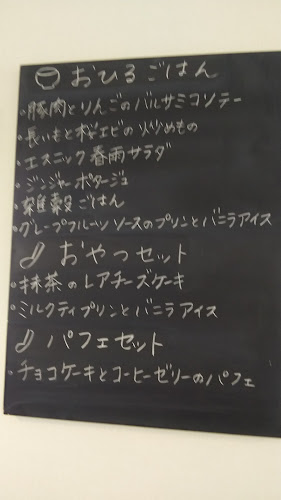 おひるごはん
・豚肉とりんごのバルサミコソテー
・長いもと桜エビの炒めもの
・エスニック春雨サラダ
・ジンジャーポタージュ
・雑穀ごはん
・グレープフルーツソースのプリンとバニラアイス
おやつセット
・抹茶のレアチーズケーキ
・ミルクティプリンとバニラアイス
パフェセット
・チョコケーキとコーヒーゼリーのパフェ